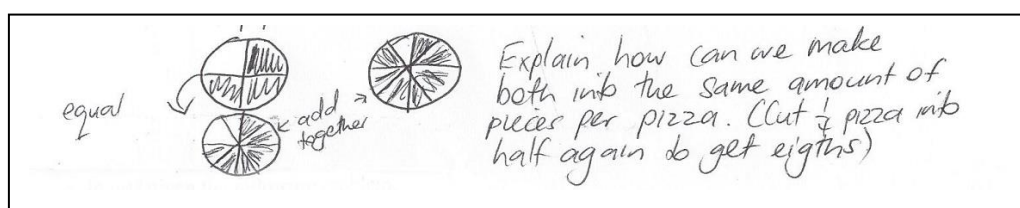 equal
add
together
Explain how can we make
both into the same amount of
pieces per pizza. (Cut 1/4 pizza into
half again do get eigths)